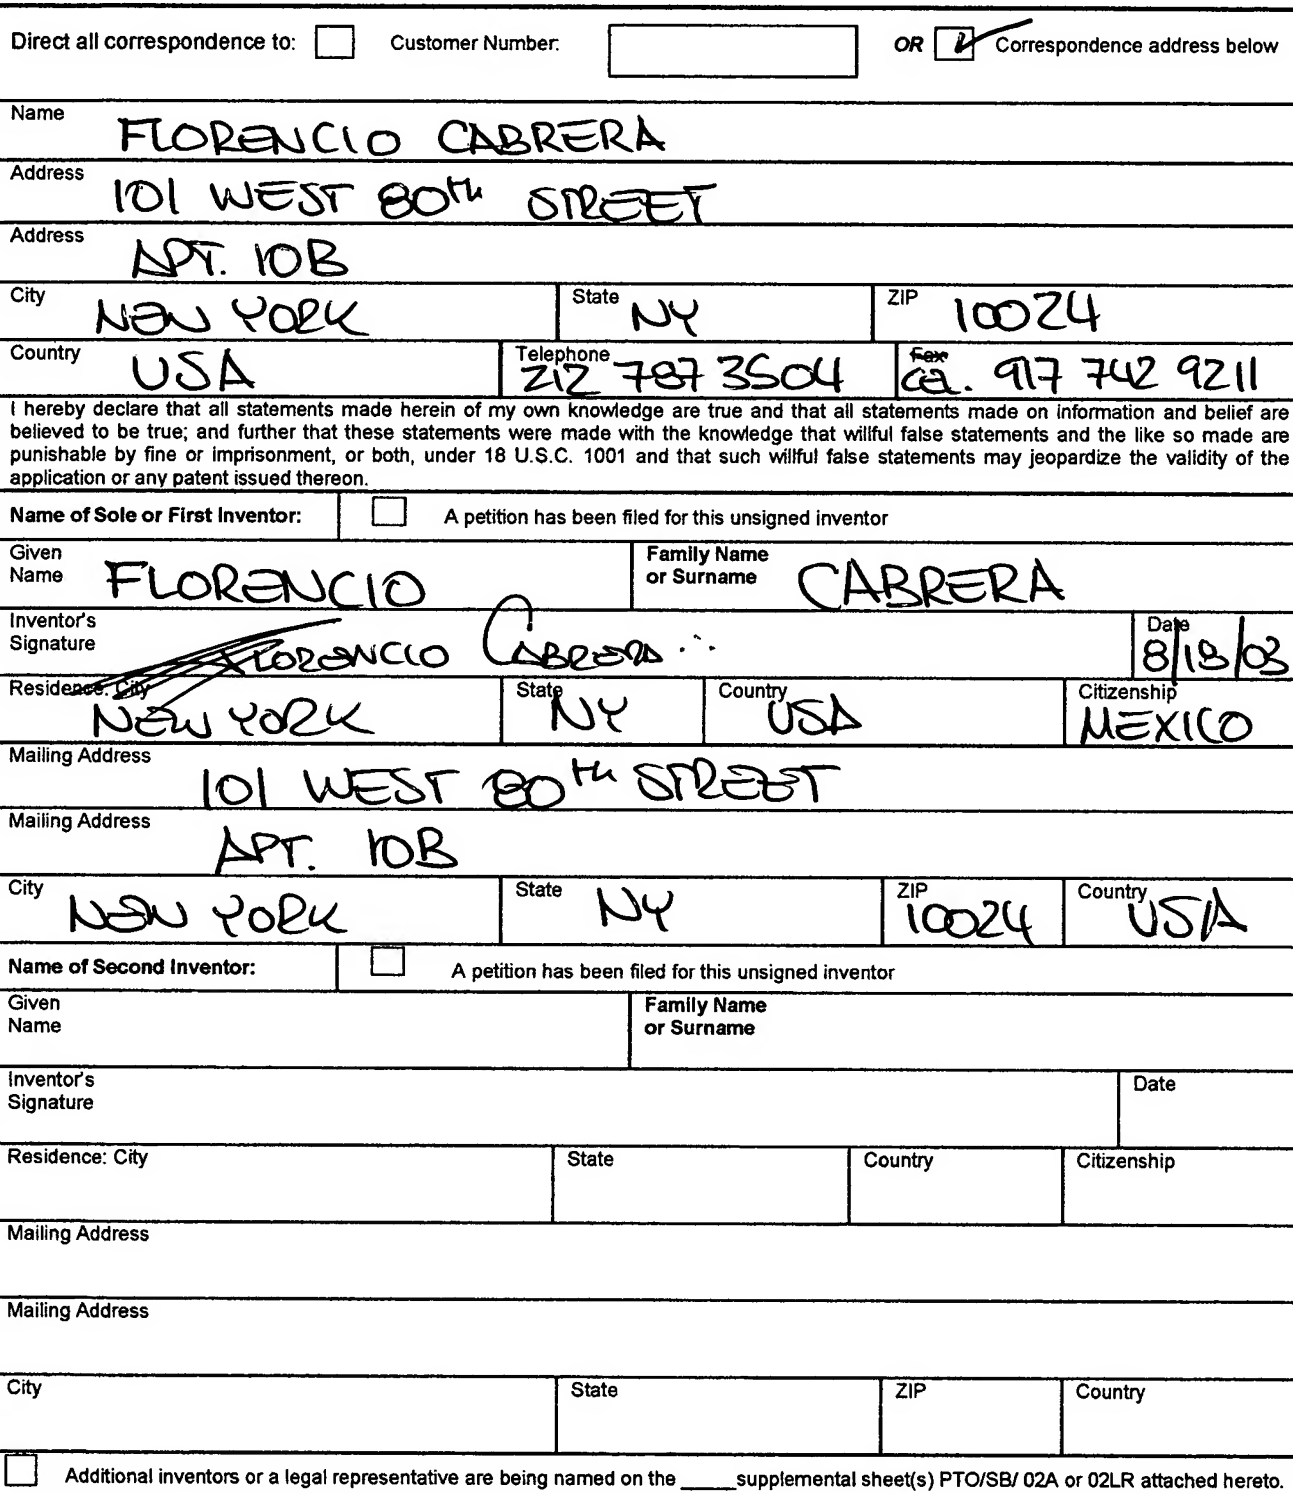 Direct all correspondence to: Customer Number: OR Correspondence address below
Name FLORENCIO CABRERA
Address 101 WEST 80th STREET
Address APT. 10B
City NEW YORK State NY ZIP 10024
Country USA Telephone 212 787 3504 Fax CEL. 917 742 9211
I hereby declare that all statements made herein of my own knowledge are true and that all statements made on information and belief are
believed to be true; and further that these statements were made with the knowledge that willful false statements and the like so made are
punishable by fine or imprisonment, or both, under 18 U.S.C. 1001 and that such willful false statements may jeopardize the validity of the
application or any patent issued thereon.
Name of Sole or First Inventor: A petition has been filed for this unsigned inventor
Given Family Name
Name FLORENCIO or Surname CABRERA
Inventor's Date
Signature FLORENCIO CABRERA 8/18/03
Residence: City NEW YORK State NY Country USA Citizenship MEXICO
Mailing Address 101 WEST 80th STREET
Mailing Address APT. 10B
City NEW YORK State NY ZIP 10024 Country USA
Name of Second Inventor: A petition has been filed for this unsigned inventor
Given Family Name
Name or Surname
Inventor's Date
Signature
Residence: City State Country Citizenship
Mailing Address
Mailing Address
City State ZIP Country
Additional inventors or a legal representative are being named on the _____supplemental sheet(s) PTO/SB/ 02A or 02LR attached hereto.